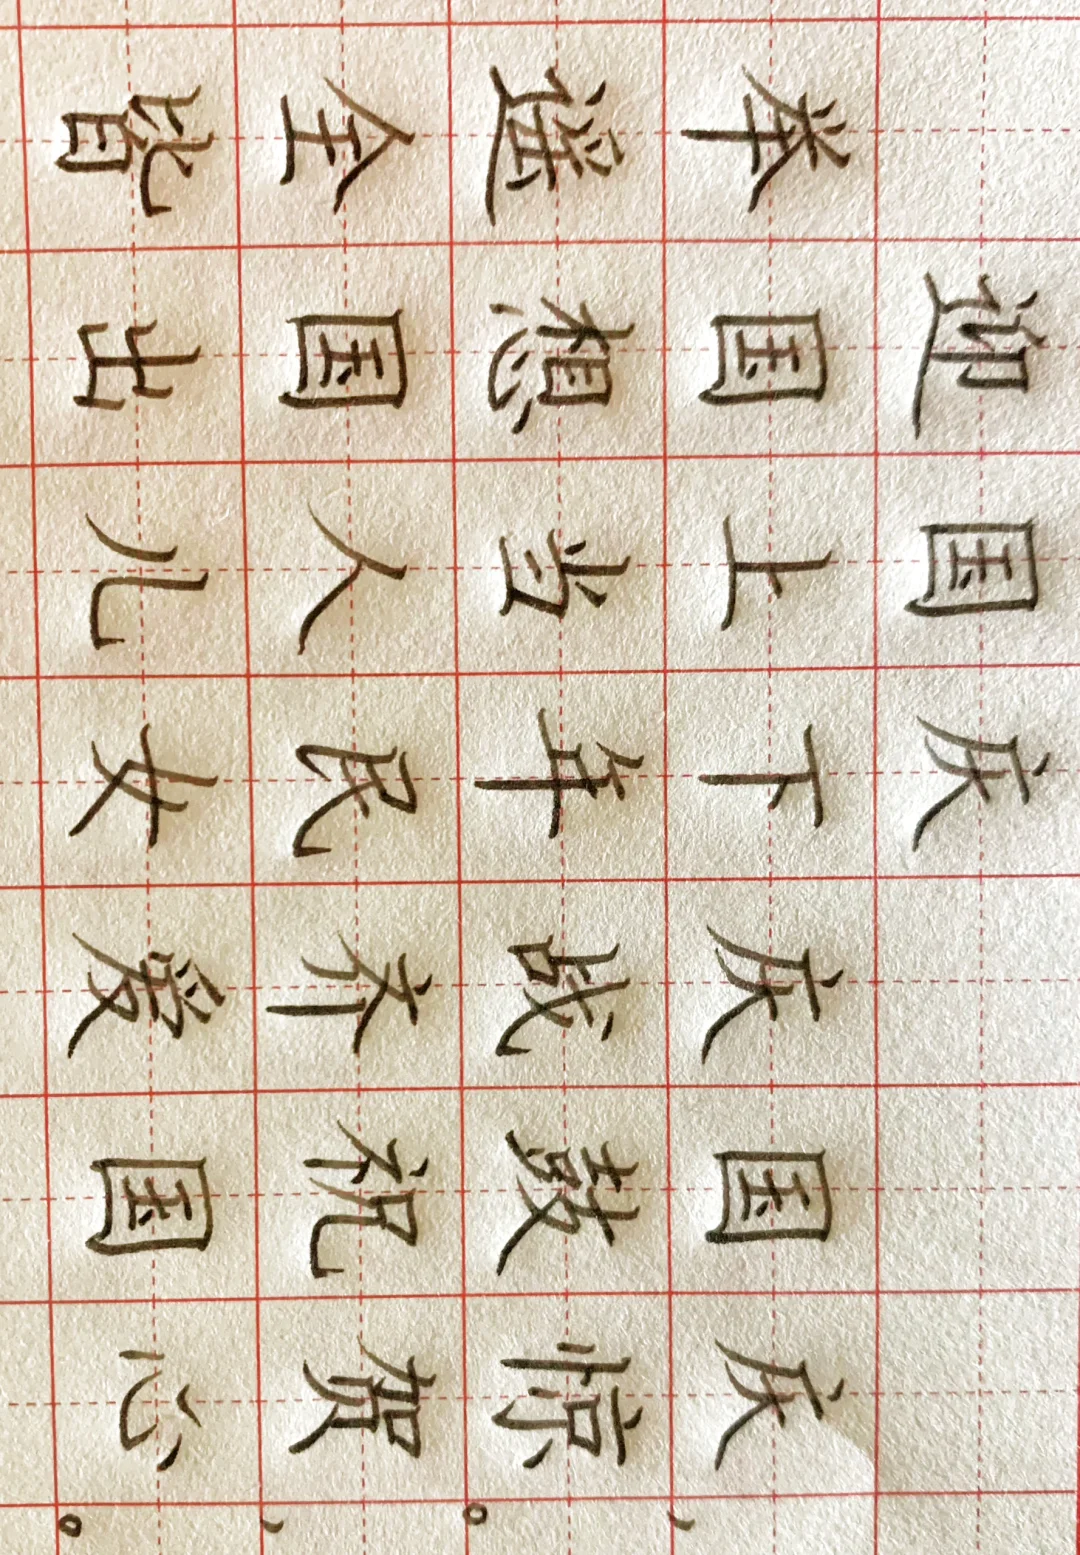 迎国庆
举国上下庆国庆，
遥想当年战鼓惊。
全国人民齐祝贺，
皆出儿女爱国心。